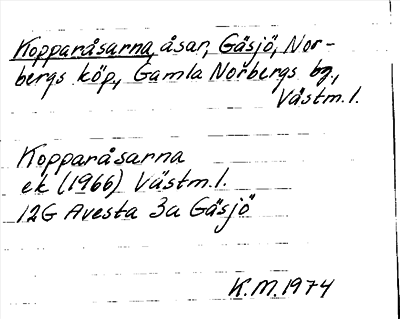 Kopparåsarna, åsar, Gäsjö, Nor-
bergs köp., Gamla Norbergs bg.,
Västm.l.
Kopparåsarna
ek (1966) Västm.l.
12G Avesta 3a Gäsjö
K.M. 1974